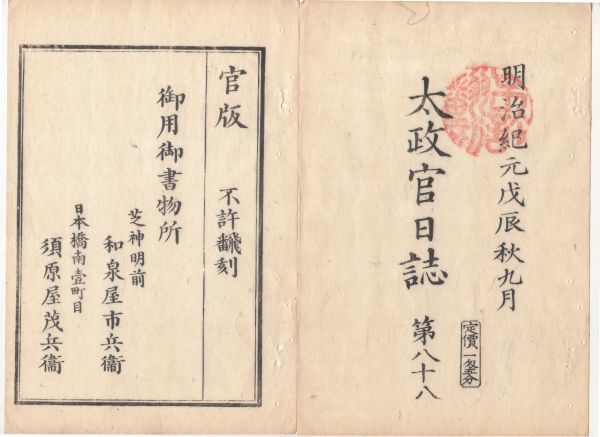 明治紀元戊辰秋九月
太政官日誌 第八十八
定價一匁五分
官版 不許翻刻
御用御書物所
芝神明前
和泉屋市兵衞
日本橋南壹町目
須原屋茂兵衞